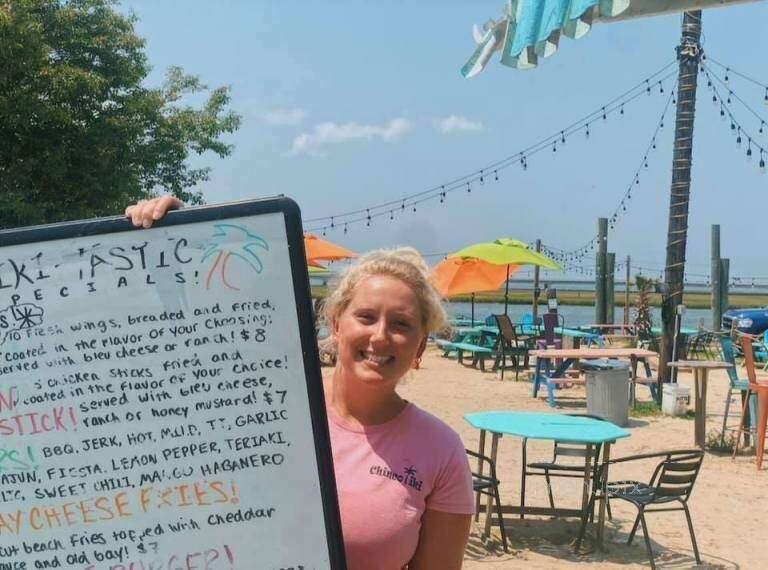 IKI-TASTIC
SPECIALS!
10 fresh wings, breaded and fried,
coated in the flavor of your choosing;
served with bleu cheese or ranch! $8
5 chicken sticks fried and
coated in the flavor of your choice!
STICK! served with bleu cheese,
ranch or honey mustard! $7
RS! BBQ, JERK, HOT, MILD, GARLIC
CAJUN, FIESTA, LEMON PEPPER, TERIAKI,
SWEET CHILI, MANGO HABANERO
AY CHEESE FRIES!
cut beach fries topped with cheddar
uce and old bay! $7
BURGER!
Chincotiki